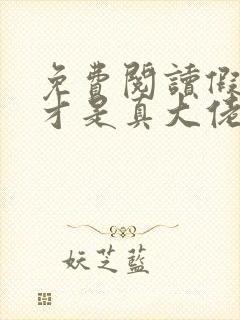 免費閱讀假
才是真大佬
妖芝藍